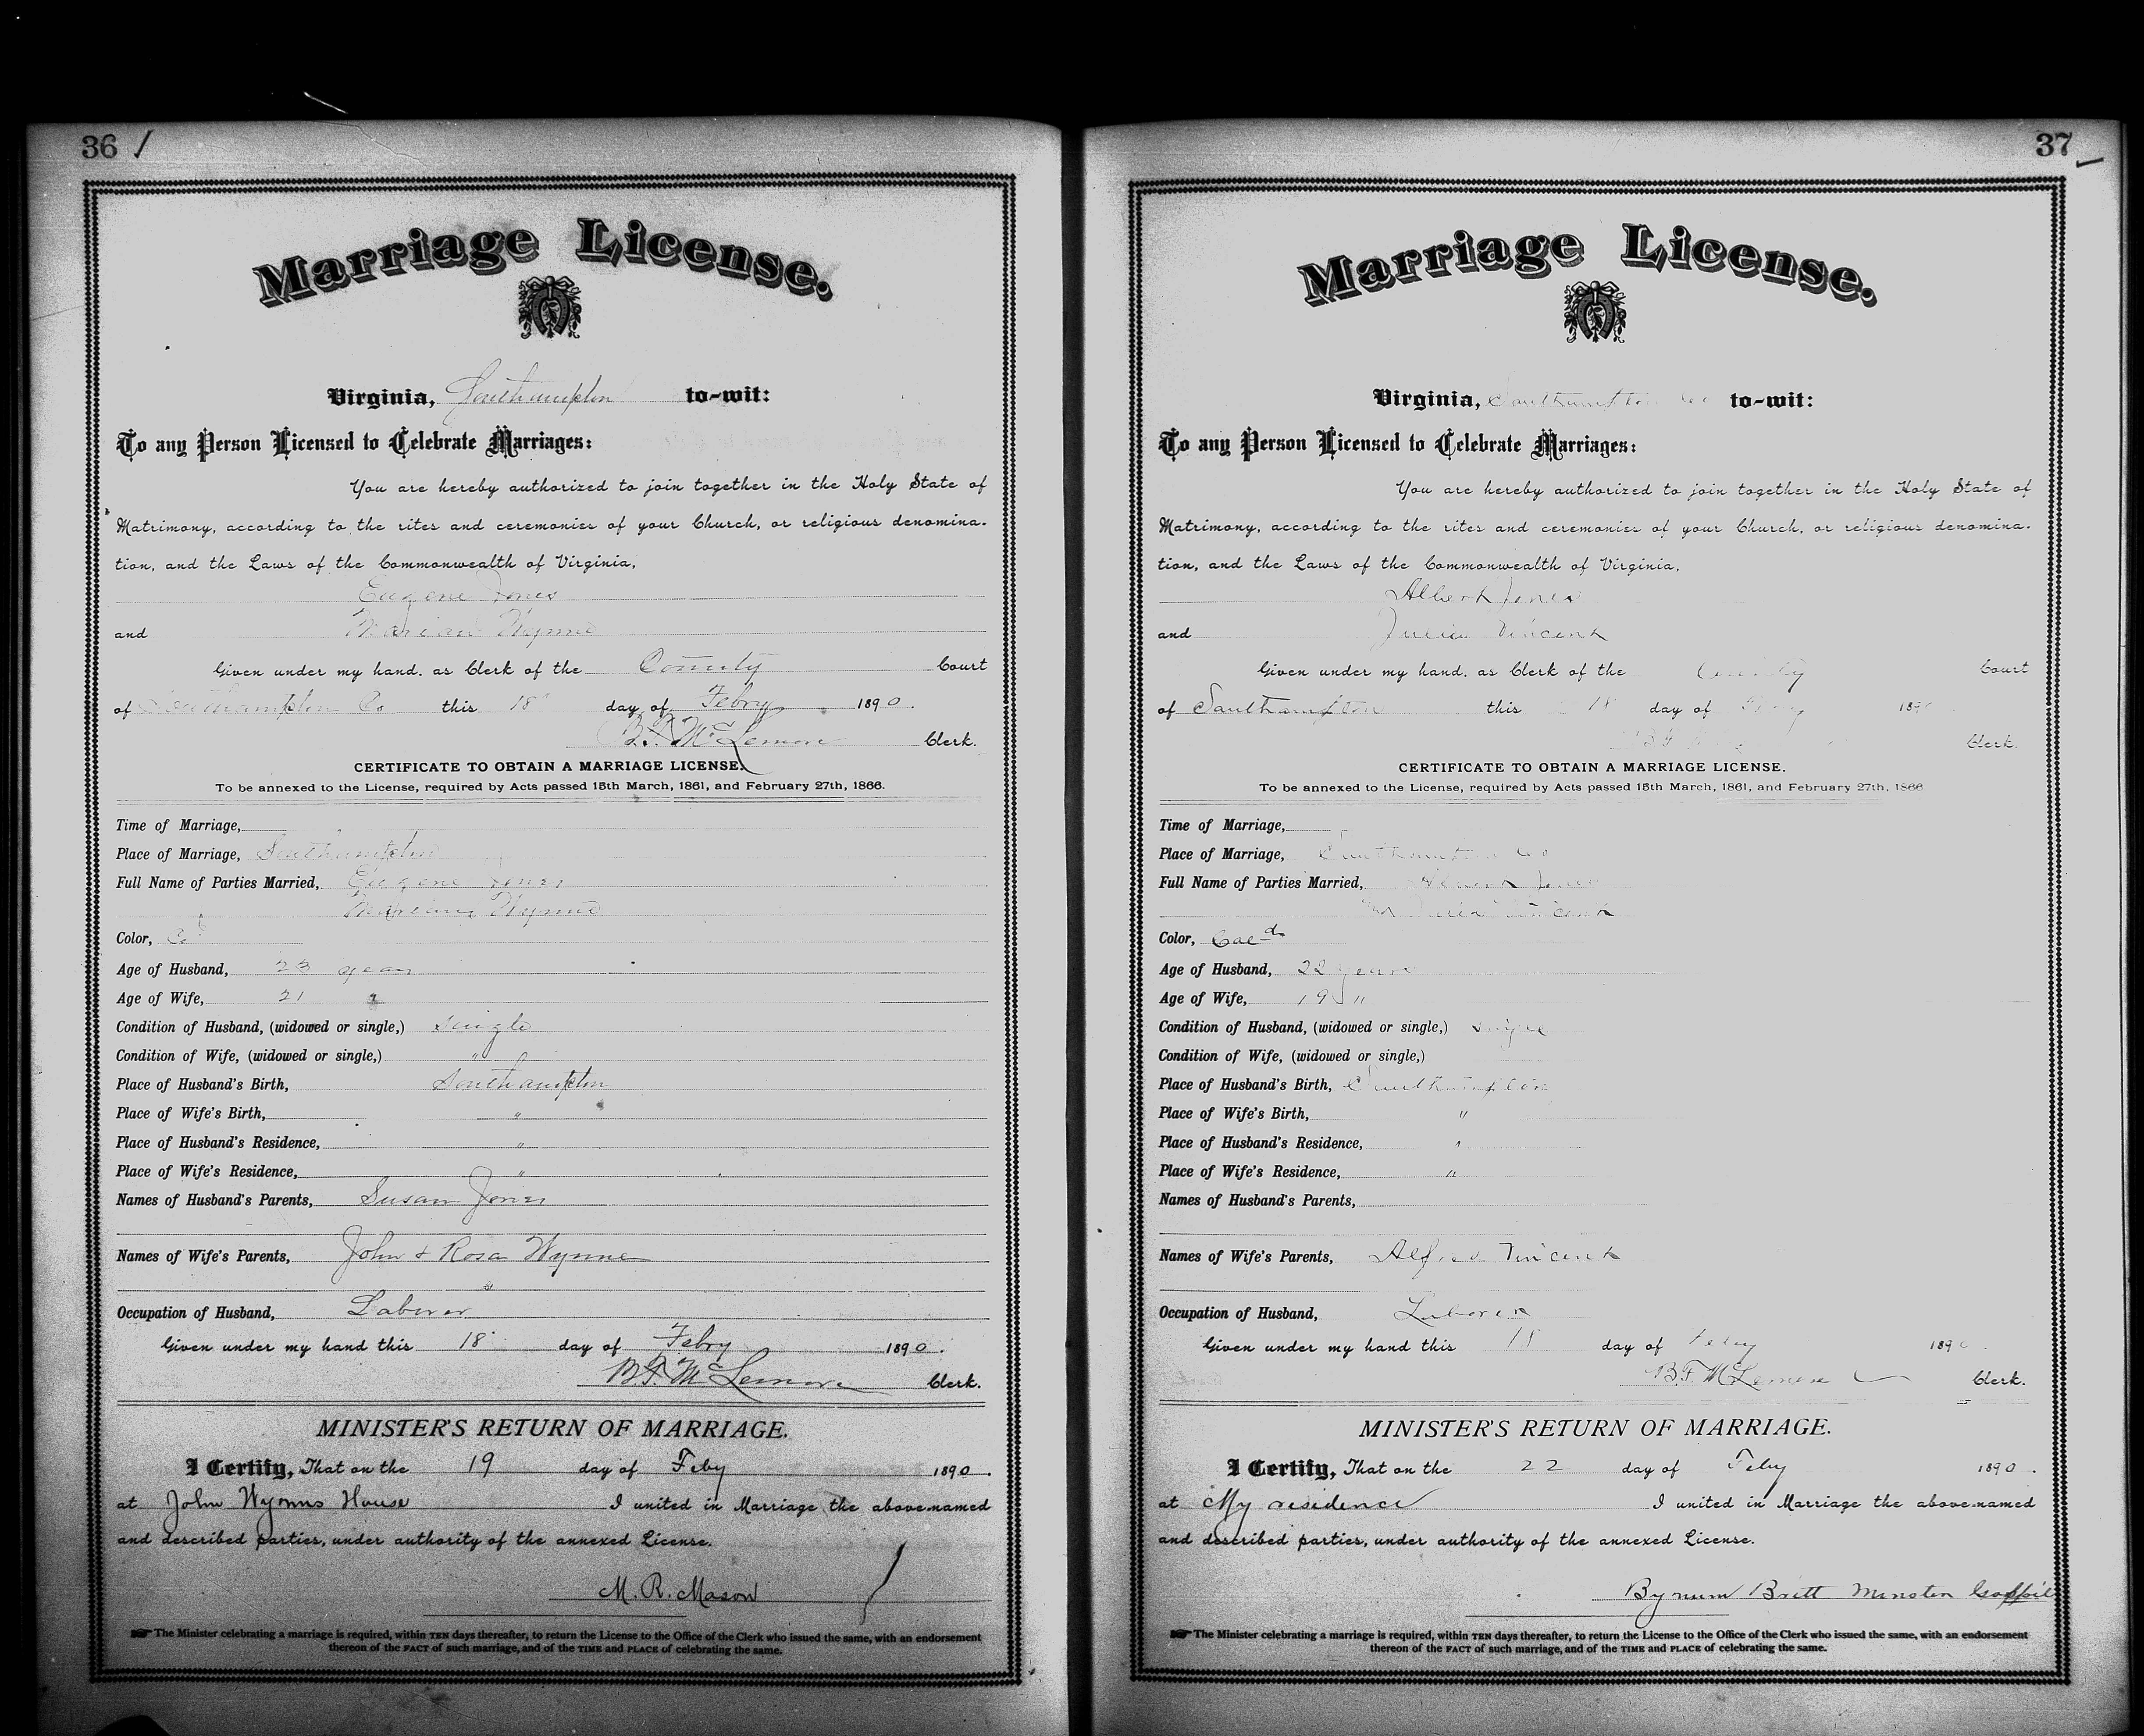 36
Marriage License.
Virginia, Southampton to-wit:
To any Person Licensed to Celebrate Marriages:
You are hereby authorized to join together in the Holy State of
Matrimony, according to the rites and ceremonies of your Church, or religious denomina-
tion, and the Laws of the Commonwealth of Virginia,
Eugene Jones
and Wynne
Given under my hand, as Clerk of the County Court
of Southampton Co this 18 day of Febry 1890.
B.F. McLemore Clerk.
CERTIFICATE TO OBTAIN A MARRIAGE LICENSE.
To be annexed to the License, required by Acts passed 15th March, 1861, and February 27th, 1866.
Time of Marriage,
Place of Marriage, Southampton
Full Name of Parties Married, Eugene Jones
Wynne
Color,
Age of Husband, 23 years
Age of Wife, 21 "
Condition of Husband, (widowed or single,) single
Condition of Wife, (widowed or single,) "
Place of Husband's Birth, Southampton
Place of Wife's Birth, "
Place of Husband's Residence, "
Place of Wife's Residence, "
Names of Husband's Parents, Susan Jones
Names of Wife's Parents, John & Rosa Wynne
Occupation of Husband, Laborer
Given under my hand this 18 day of Febry 1890.
B.F. McLemore Clerk.
MINISTER'S RETURN OF MARRIAGE.
I Certify, That on the 19 day of Feby 1890.
at John Wynns House I united in Marriage the above-named
and described parties, under authority of the annexed License.
M. R. Mason
The Minister celebrating a marriage is required, within TEN days thereafter, to return the License to the Office of the Clerk who issued the same, with an endorsement
thereon of the FACT of such marriage, and of the TIME and PLACE of celebrating the same.
37
Marriage License.
Virginia, Southampton Co to-wit:
To any Person Licensed to Celebrate Marriages:
You are hereby authorized to join together in the Holy State of
Matrimony, according to the rites and ceremonies of your Church, or religious denomina-
tion, and the Laws of the Commonwealth of Virginia,
Albert Jones
and Julia Vincent
Given under my hand, as Clerk of the County Court
of Southampton this 18 day of Feby 189
Clerk.
CERTIFICATE TO OBTAIN A MARRIAGE LICENSE.
To be annexed to the License, required by Acts passed 15th March, 1861, and February 27th, 1866
Time of Marriage,
Place of Marriage, Southampton Co
Full Name of Parties Married, Albert Jones
Julia Vincent
Color, Col-d
Age of Husband, 22 years
Age of Wife, 19 "
Condition of Husband, (widowed or single,) single
Condition of Wife, (widowed or single,)
Place of Husband's Birth, Southampton
Place of Wife's Birth, "
Place of Husband's Residence, "
Place of Wife's Residence, "
Names of Husband's Parents,
Names of Wife's Parents, Alfred Vincent
Occupation of Husband, Laborer
Given under my hand this 18 day of Feby 189
B.F. McLemore Clerk.
MINISTER'S RETURN OF MARRIAGE.
I Certify, That on the 22 day of Feby 1890.
at My residence I united in Marriage the above-named
and described parties, under authority of the annexed License.
Bynum Britt
The Minister celebrating a marriage is required, within TEN days thereafter, to return the License to the Office of the Clerk who issued the same, with an endorsement
thereon of the FACT of such marriage, and of the TIME and PLACE of celebrating the same.